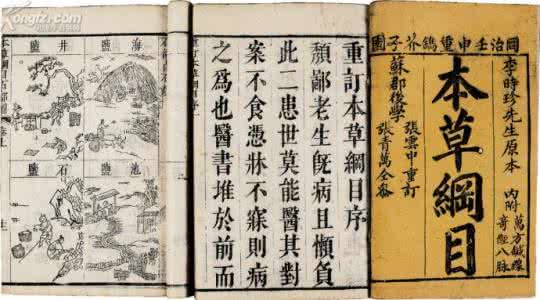 同治壬申重鐫芥子園
李時珍先生原本
內附
萬方鍼線
奇經八脈
本草綱目
蘇郡後學
張雲中重訂
張青萬全參
重訂本草綱目序
頹鄙老生旣病且懶負
此二患世莫能醫其對
案不食憑牀不寐則病
之爲也醫書堆於前而
海鹽
井鹽
池鹽
石鹽